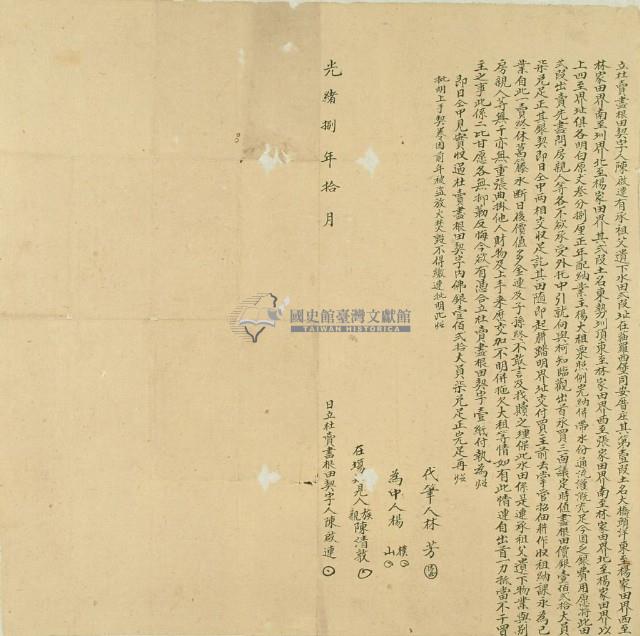 立杜賣盡根田契字人陳啟連有承祖父遺下水田弍段址在西螺西堡同安厝庄其第壹段土名大橋頭洋東至楊家田界西至
林家田界南至圳界北至楊家田界其弍段土名東勢圳頂東至林家田界西至張家田界南至林家田界北至楊家田界以
上四至界址俱各明白原丈叁分捌厘正年配納業主楊大租粟照例完納併帶水份通流灌溉充足今因乏銀費用愿將此田
弍段出賣先盡問房親人等各不欲承受外托中引就向與柯知臨觀出首承買三面議定時值盡根田價銀壹佰弍拾大員
柒兌足正其銀契即日仝中兩相交收足訖其田隨即起耕踏明界址交付買主前去掌管招佃耕作收租納課永為己
業自此一賣終休葛藤永斷日後價值多金連及子孫終不敢言及找贖之理保此水田係是連承祖父遺下物業與別
房親人等無干亦無重張典掛他人財物及上手來歷交加不明併拖欠大租等情如有此情連自出首一力抵當不干買
主之事此係二比甘愿各無抑勒反悔今欲有憑合立杜賣盡根田契字壹紙付執為炤
即日仝中見實收過杜賣盡根田契字內佛銀壹佰弍拾大員柒兌足正完足再炤
批明上手契券因前年被盜放火焚毀不得繳連批明此炤
代筆人林芳
為中人楊 樸 山
在場知見人親族陳清敦
光緒捌年拾月 日立杜賣盡根田契字人陳啟連
國史館臺灣文獻館
TAIWAN HISTORICA